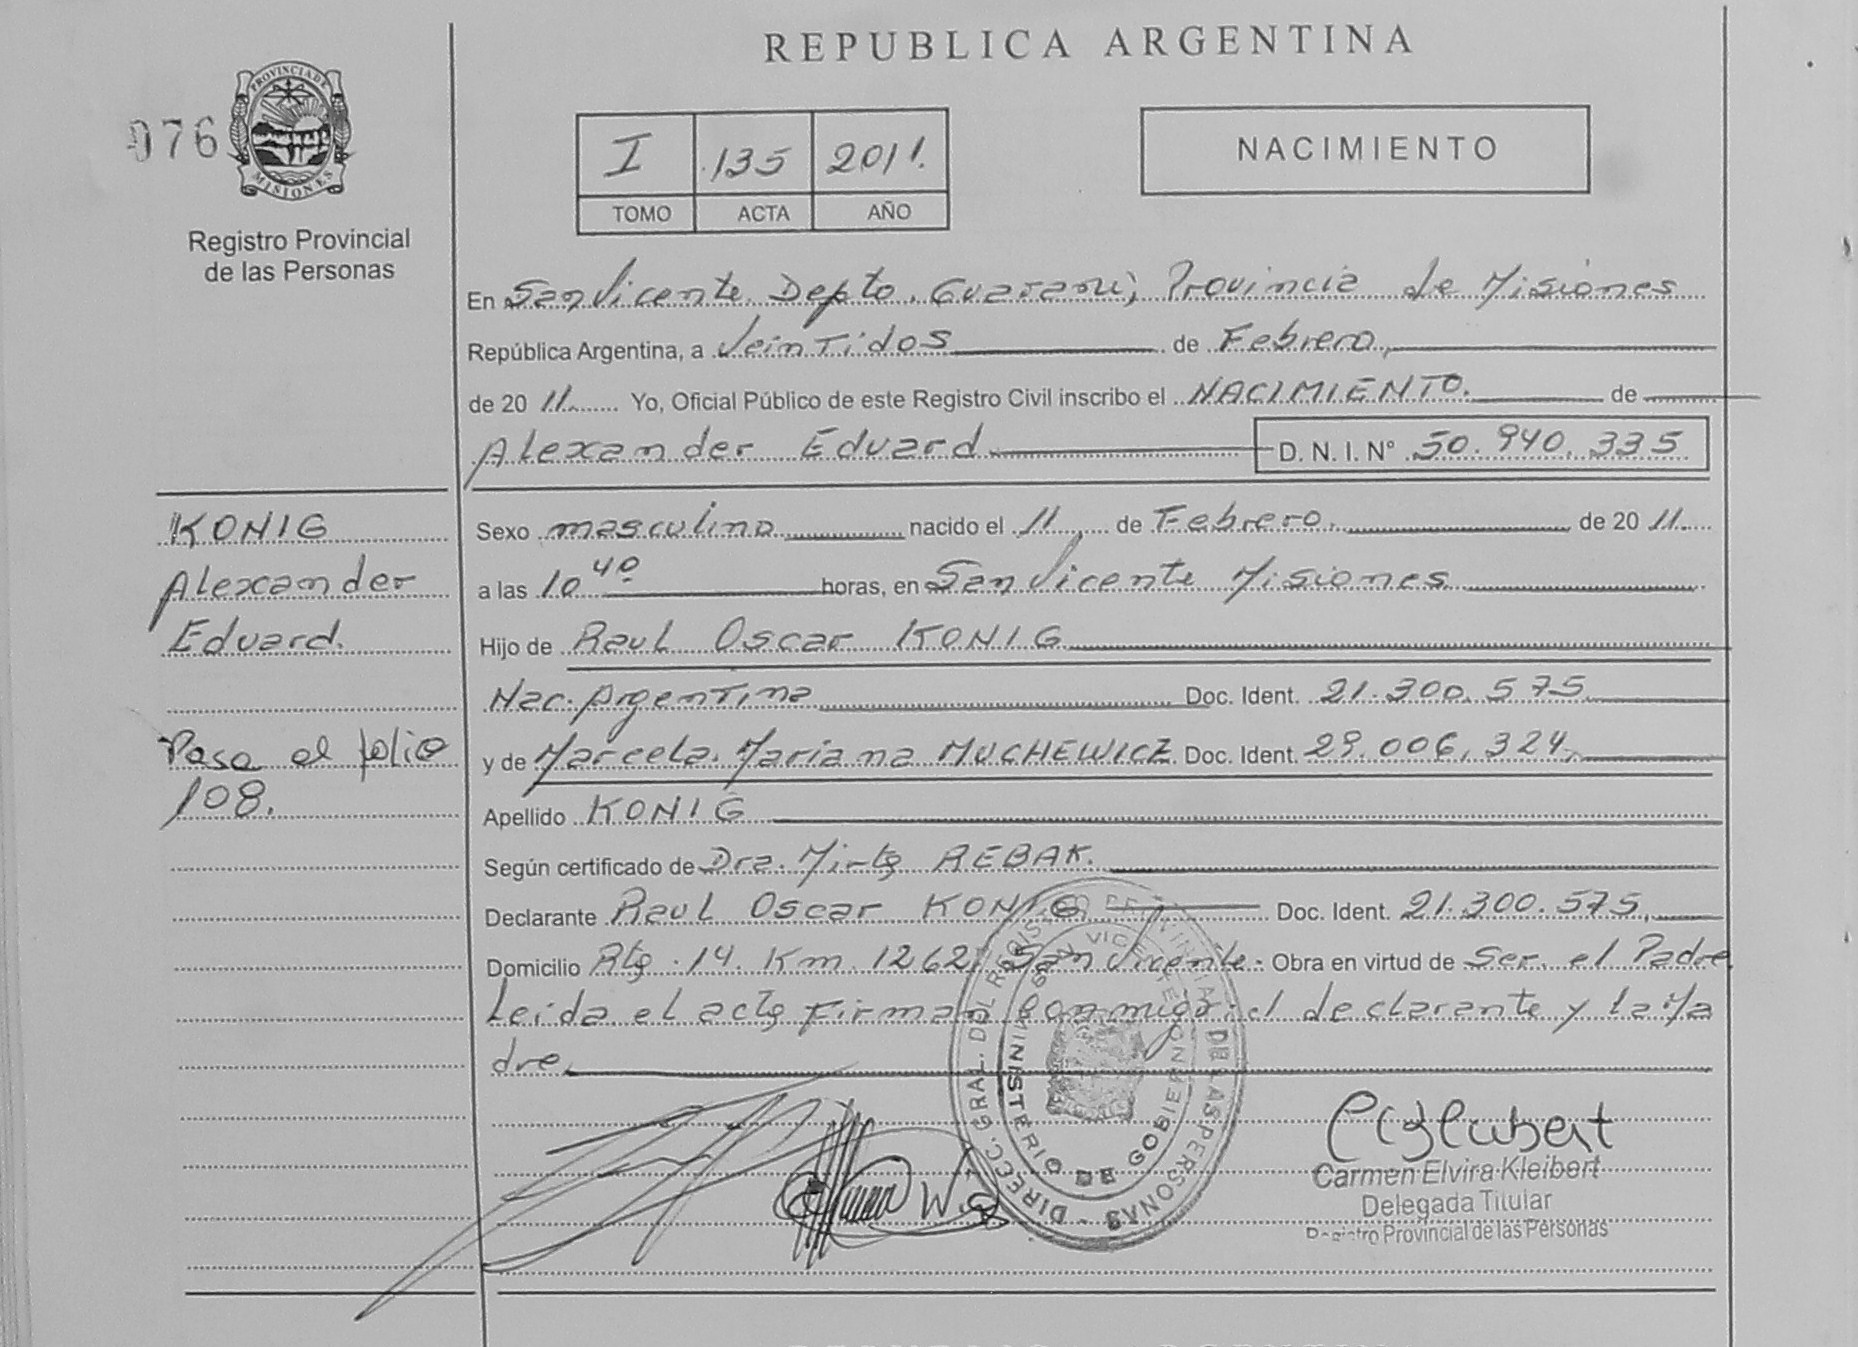 REPUBLICA ARGENTINA
076
PROVINCIA DE
MISIONES
Registro Provincial
de las Personas
I 135 2011.
TOMO ACTA AÑO
NACIMIENTO
En San Vicente Depto. Guarani, Provincia de Misiones
República Argentina, a Veintidos de Febrero,
de 20 11. Yo, Oficial Público de este Registro Civil inscribo el NACIMIENTO. de
Alexander Eduard D. N. I. N° 50.940.335
KONIG
Alexander
Eduard.
Pasa al folio
108.
Sexo masculino nacido el 11 de Febrero. de 20 11.
a las 10 40 horas, en San Vicente Misiones
Hijo de Raul Oscar KONIG
Nac. Argentina Doc. Ident. 21.300.575
y de Marcela Mariana MUCHEWICZ Doc. Ident. 29.006.324
Apellido KONIG
Según certificado de Dra. Mirta REBAK.
Declarante Raul Oscar KONIG Doc. Ident. 21.300.575,
Domicilio Rta. 14. Km. 1262, San Vicente. Obra en virtud de Ser. el Padre
Leida el acta Firman conmigo: el declarante y la Ma
dre.
DIREC. GRAL. DEL REGISTRO PROVINCIAL DE LAS PERSONAS
MINISTERIO DE GOBIERNO
SAN VICENTE
Carmen Elvira Kleibert
Delegada Titular
Registro Provincial de las Personas